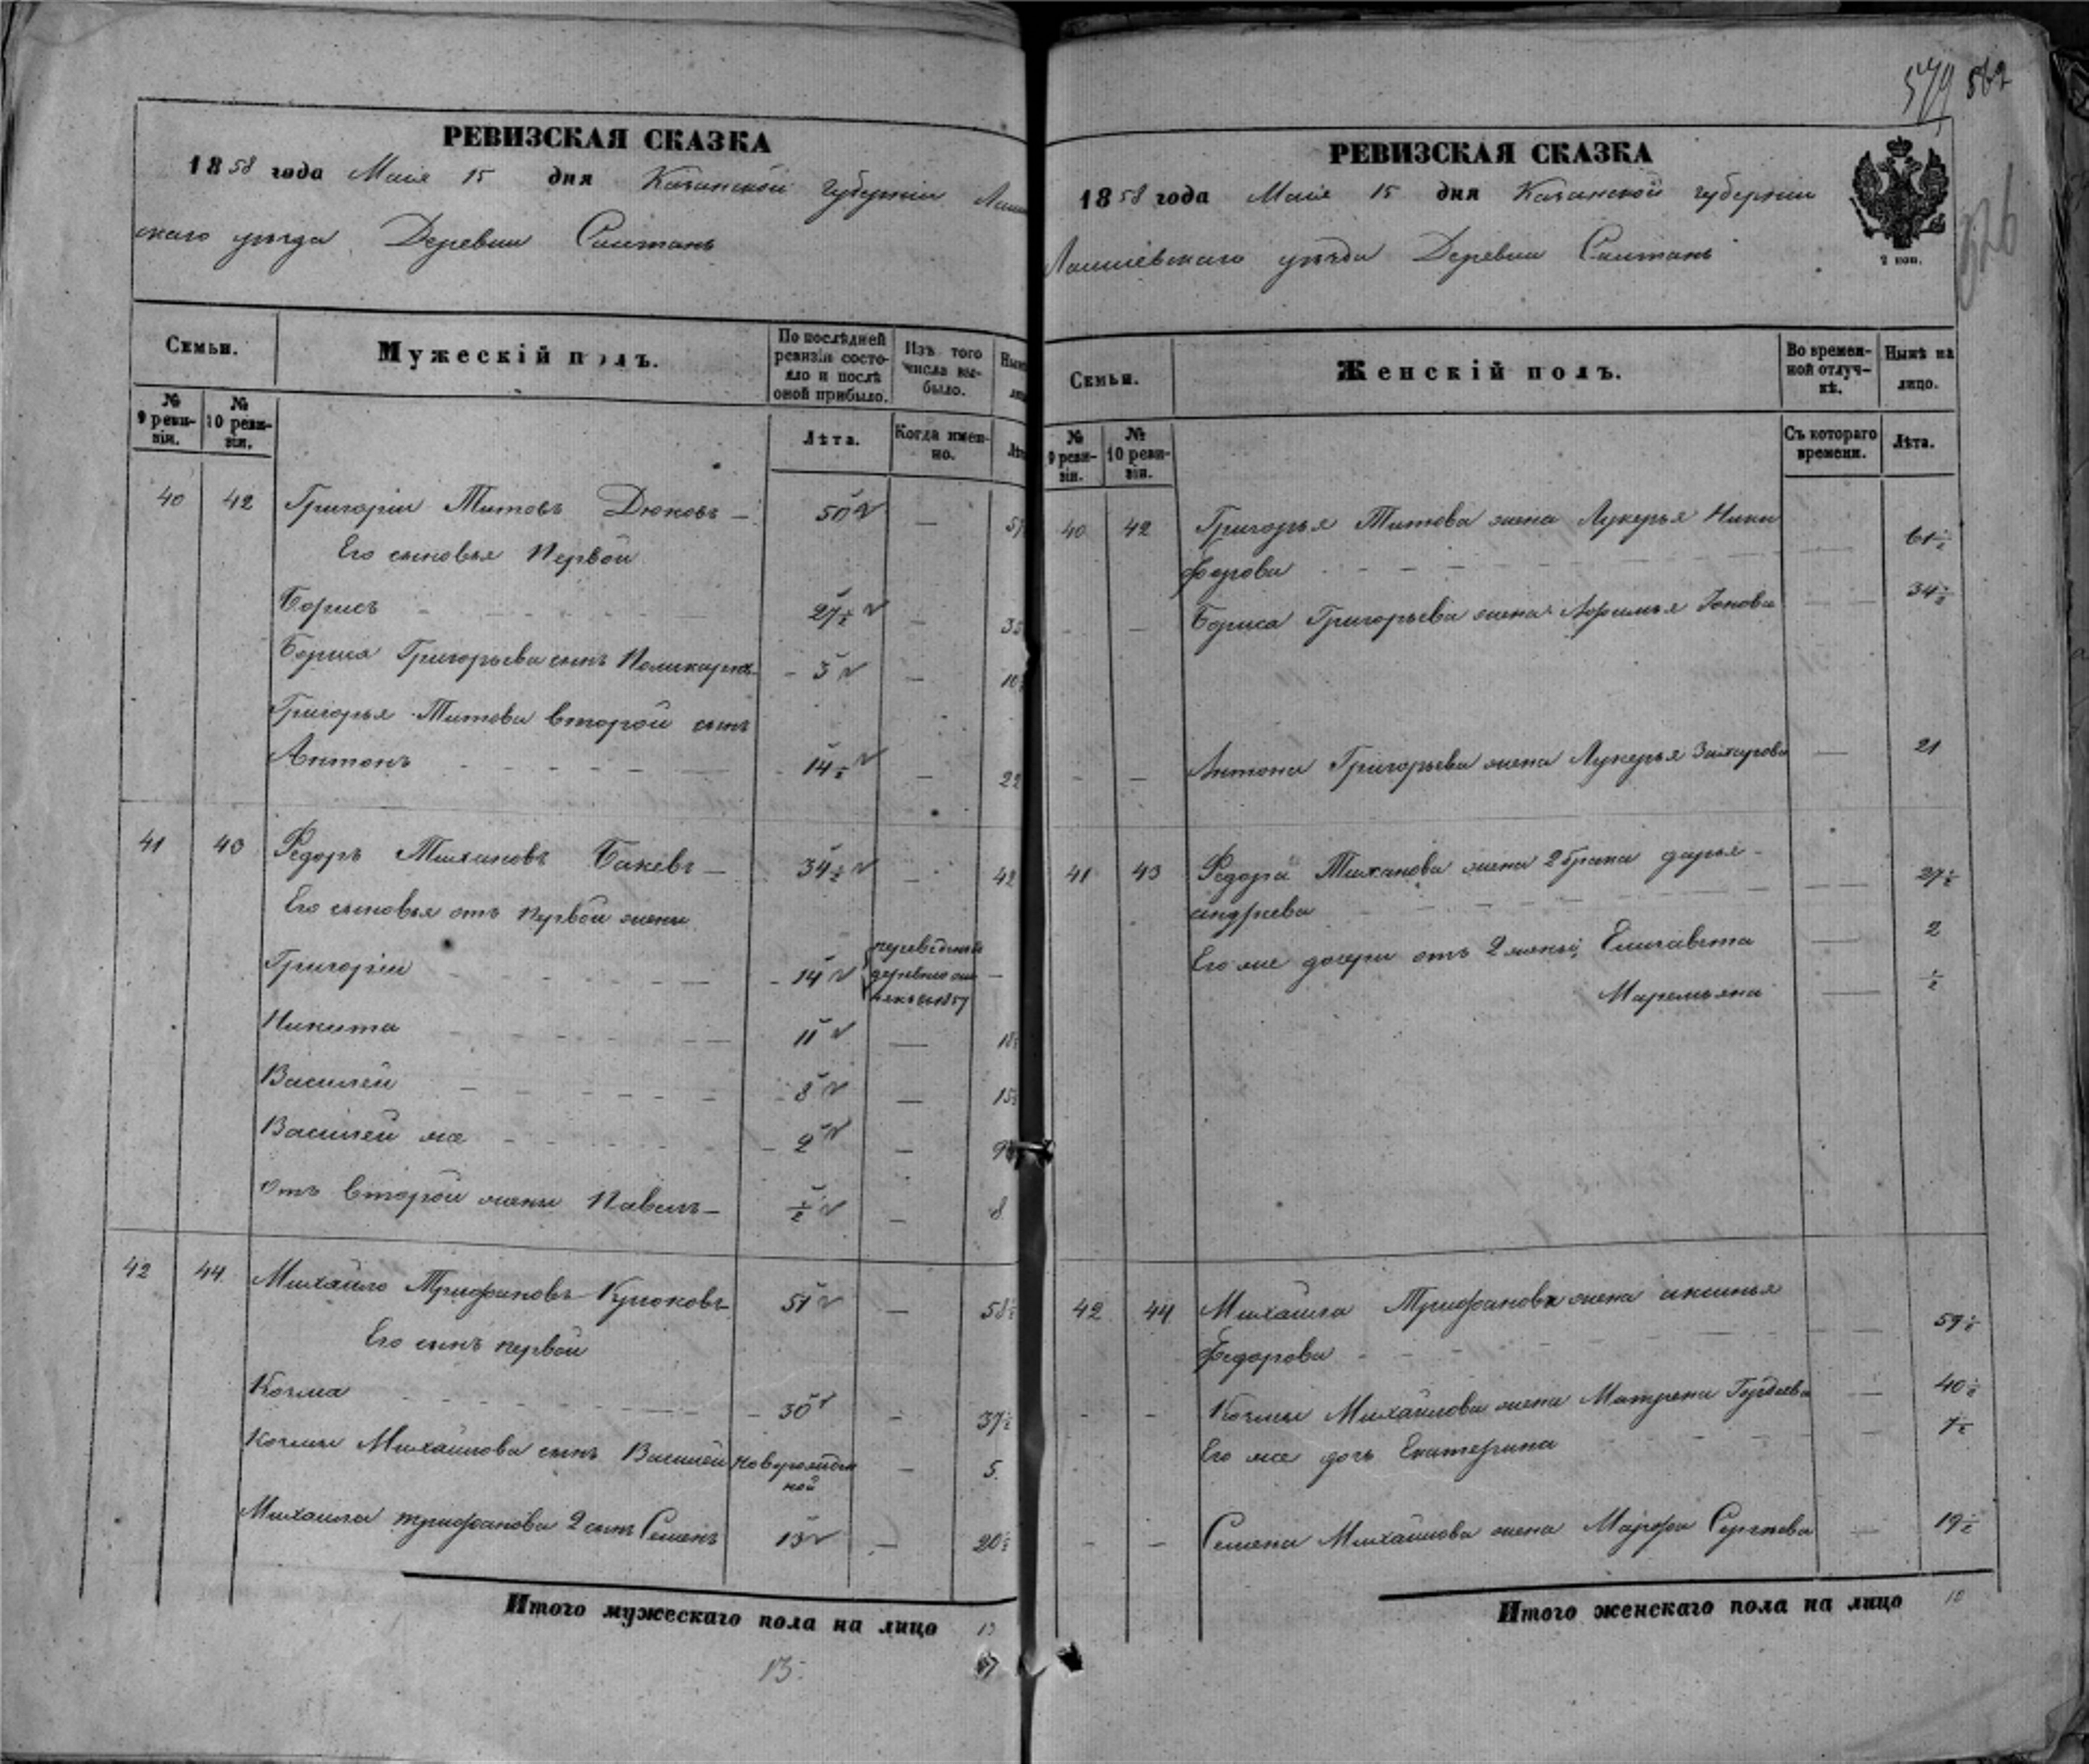 579 562
326
РЕВИЗСКАЯ СКАЗКА
1858 года Маія 15 дня Казанской Губерніи Лаиш
скаго уѣзда Деревни
Семьи.
Мужескій полъ.
По послѣдней ревизіи состо-
яло и послѣ оной прибыло.
Изъ того числа вы-
было.
Нынѣ
№ 9 реви-
зіи.
№ 10 реви-
зіи.
Лѣта.
Когда имен-
но.
40 42 Григорій Титовъ Дюковъ — 50 —
Его сыновья Первой
Борисъ 27½ —
Бориса Григорьева сынъ Поликарпъ 3 —
Григорья Титова второй сынъ
Антонъ 14½ — 22
41 43 Федоръ Тихановъ Бакевъ — 34½ — 42
Его сыновья отъ первой жены
Григорій 14 —
Никита 11 — 18
Василей 8 — 15
Василей же 2 — 9
отъ второй жены Павелъ — ½ — 8
42 44 Михайло Трифановъ Крюковъ 51 — 58½
Его сынъ первой
Козма 30 — 37½
Козмы Михайлова сынъ Василей новорожден
ной — 5.
Михаила трифанова 2 сынъ Семенъ 13 — 20½
Итого мужескаго пола на лицо 13
13.
РЕВИЗСКАЯ СКАЗКА
1858 года Маія 15 дня Казанской губерніи
Лаишевскаго уѣзда Деревни
2 коп.
Семьи.
Женскій полъ.
Во времен-
ной отлуч-
кѣ.
Нынѣ на
лицо.
№ 9 реви-
зіи.
№ 10 реви-
зіи.
Съ котораго
времени.
Лѣта.
40 42 Григорья Титова жена Лукерья Ники
форова — 61½
— — Бориса Григорьева жена Афимья Іонова — 34½
— — Антона Григорьева жена Лукерья Захарова — 21
41 43 Федора Тиханова жена 2 брака дарья
андреева — 27½
Его же дочери отъ 2 жены, Елизавета — 2
Маремьяна — ½
42 44 Михаила Трифанова жена аксинья
Федорова — 59½
— — Козмы Михайлова жена Матрена Гордеева — 40½
Его же дочь Екатерина — 7½
— — Семена Михайлова жена Марфа Сергѣева — 19½
Итого женскаго пола на лицо 10